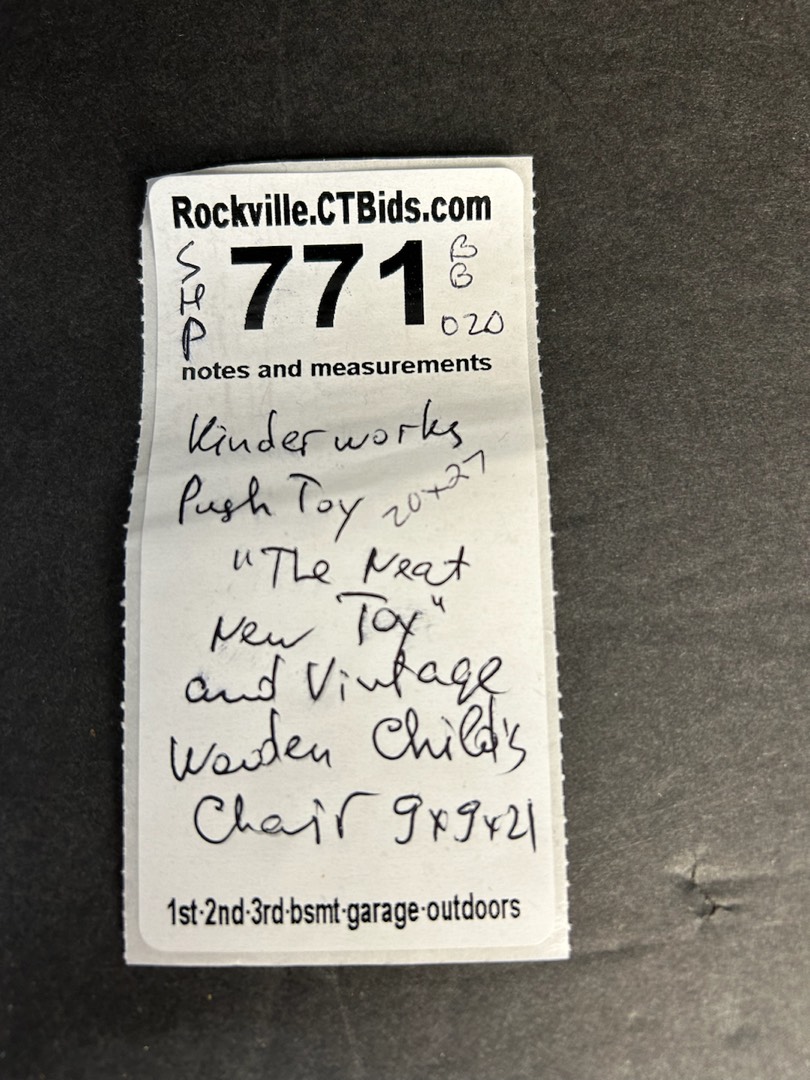 Rockville.CTBids.com
SHP 771 BB 020
notes and measurements
Kinderworks
Push Toy 20x27
"The Neat
New Toy"
and Vintage
Wooden Child's
Chair 9x9x21
1st·2nd·3rd·bsmt·garage·outdoors